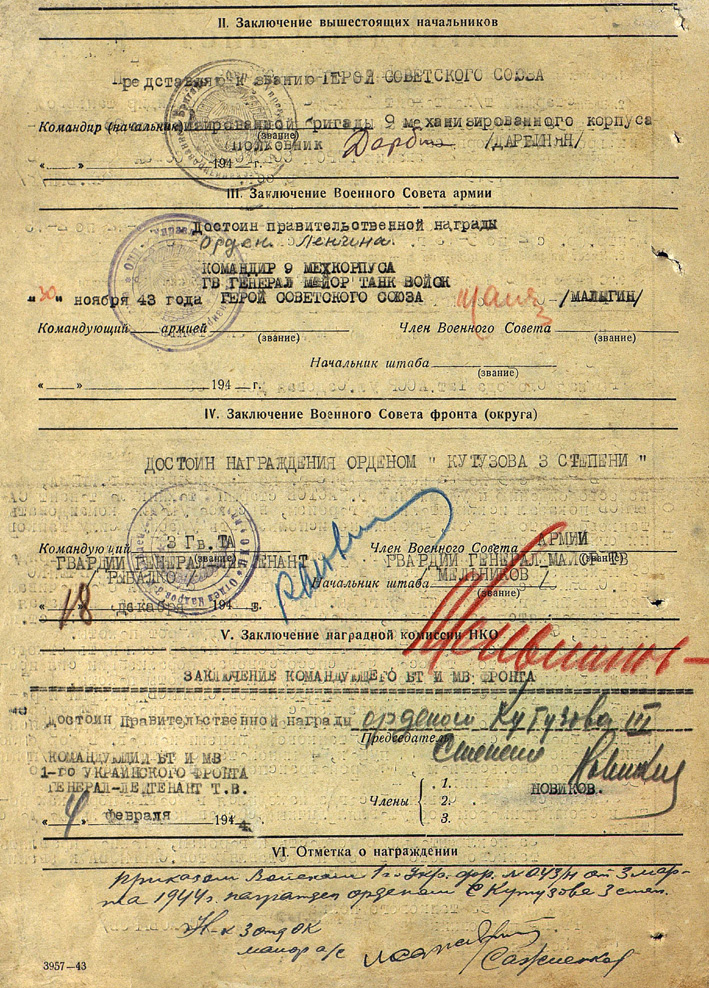 II. Заключение вышестоящих начальников
Представляю к званию ГЕРОЙ СОВЕТСКОГО СОЮЗА
Командир (начальник) изированной бригады 9 механизированного корпуса
(звание)
Полковник /ДАРБИНЯН/
„ “ 194 г.
III. Заключение Военного Совета армии
Достоин правительственной награды
Орден Ленина
КОМАНДИР 9 МЕХКОРПУСА
ГВ ГЕНЕРАЛ МАЙОР ТАНК ВОЙСК
„30“ ноября 43 года ГЕРОЙ СОВЕТСКОГО СОЮЗА /МАЛЫГИН/
Командующий армией Член Военного Совета
(звание) (звание)
Начальник штаба
(звание)
„ “ 194 г.
IV. Заключение Военного Совета фронта (округа)
ДОСТОИН НАГРАЖДЕНИЯ ОРДЕНОМ " КУТУЗОВА 3 СТЕПЕНИ "
Командующий 3 Гв.ТА Член Военного Совета АРМИИ
(звание) (звание)
ГВАРДИИ ГЕНЕРАЛ-ЛЕЙТЕНАНТ ГВАРДИИ ГЕНЕРАЛ МАЙОР ТВ
РЫБАЛКО Начальник штаба МЕЛЬНИКОВ
(звание)
„18“ декабря 194 г.
V. Заключение наградной комиссии НКО
ЗАКЛЮЧЕНИЕ КОМАНДУЮЩЕГО БТ И МВ ФРОНТА
Достоин Правительственной награды орденом Кутузова III
Председатель
Степени
КОМАНДУЮЩИЙ БТ И МВ
1-го УКРАИНСКОГО ФРОНТА
ГЕНЕРАЛ-ЛЕЙТЕНАНТ Т.В. НОВИКОВ.
Члены 1.
2.
3.
„4“ февраля 1944
VI. Отметка о награждении
Приказом Войскам 1го Укр. фр. № 043/н от 3 мар-
та 1944г. награжден орденом Кутузова 3 степ.
Н-к 3 отд ОК
майор а/с
Саженков
3957—43